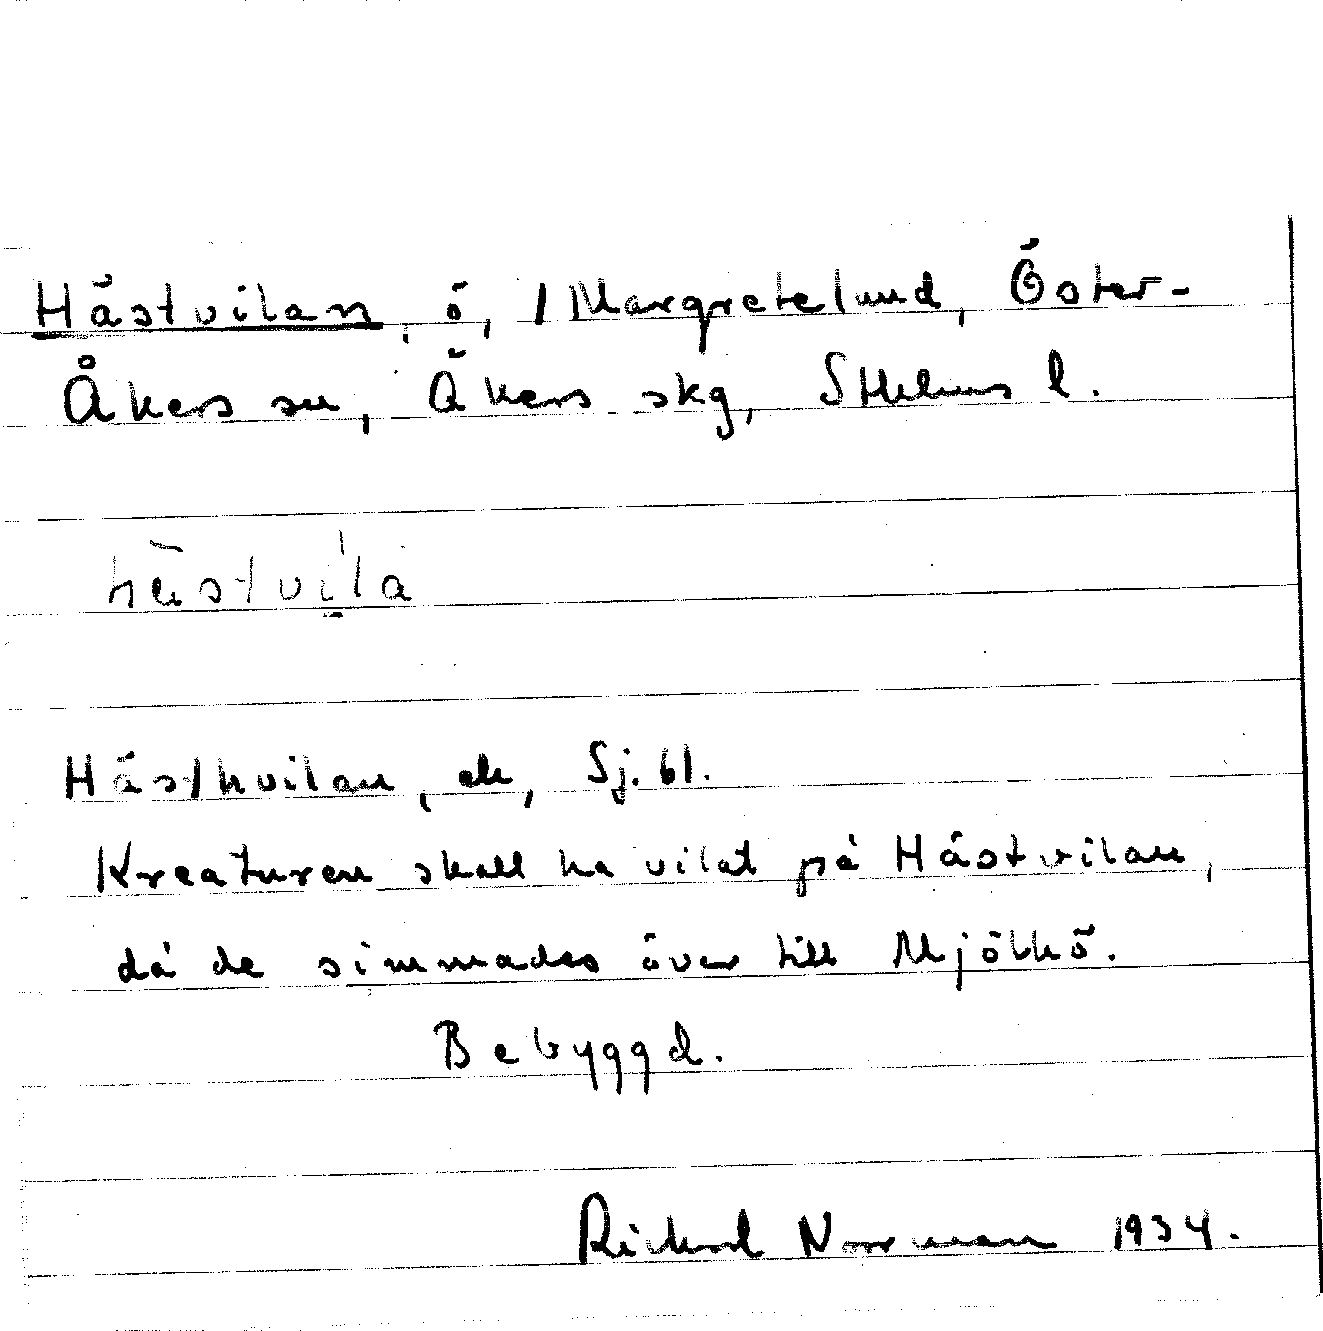 Hästvilan, ö, / Margretelund, Öster-
Åkers sn, Åkers skg, Sthlms l.
hästvila
Hästhvilan, ek, Sj. 61.
Kreaturen skall ha vilat på Hästvilan,
då de simmades över till Mjölkö.
Bebyggd.
Richard Norrman 1934.